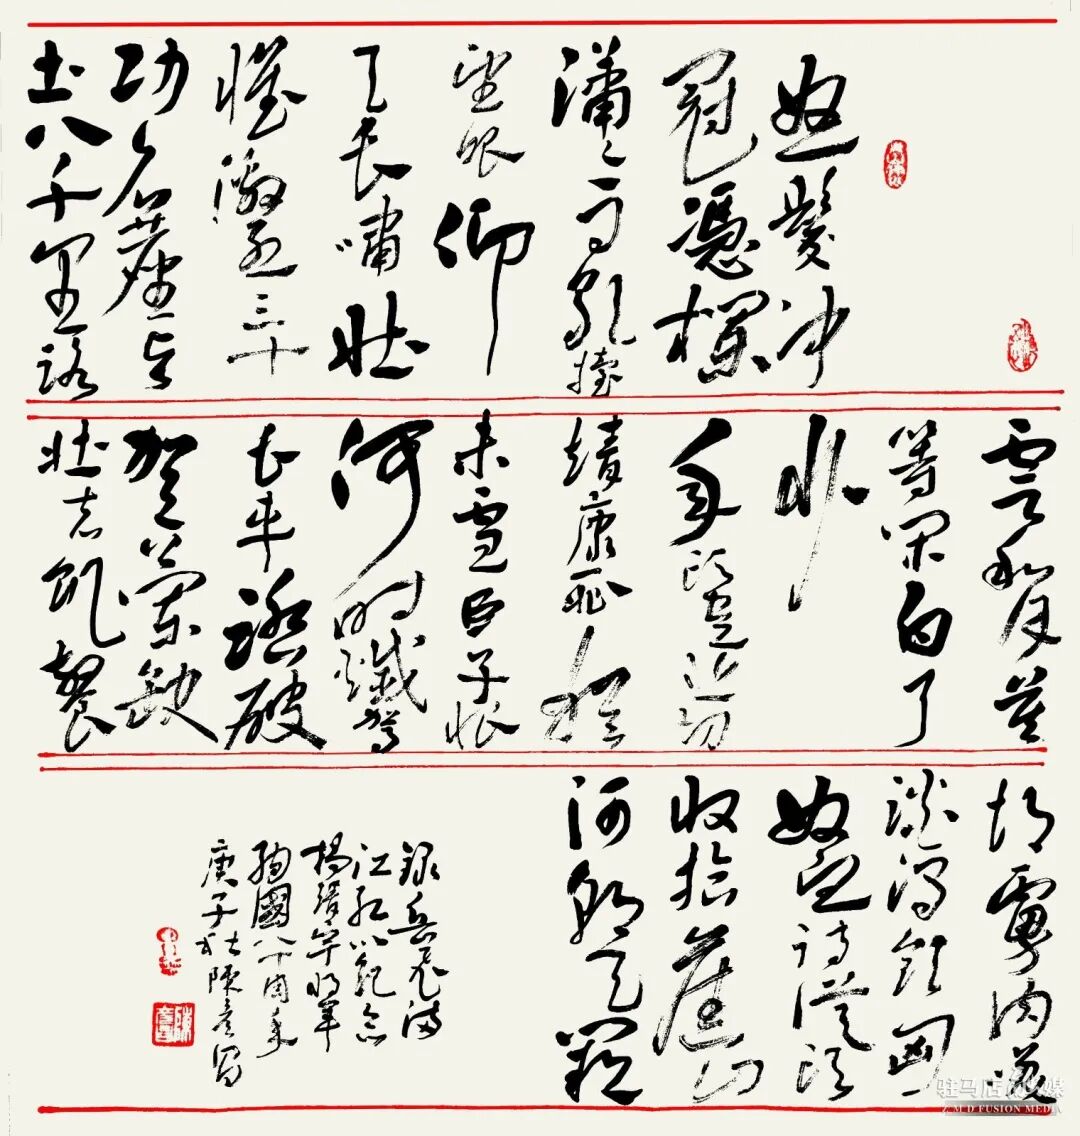 怒髮冲
冠憑欄
瀟々雨歇擡
望眼仰
天長嘯壮
懷激烈三十
功名塵与
土八千里路
雲和月莫
等闲白了
少
年頭空悲切
靖康耻猶
未雪臣子恨
何时滅駕
長車踏破
賀蘭缺
壮志飢餐
胡虜肉笑
談渴飲匈
奴血待從頭
收拾舊山
河朝天闕
録岳飛满
江红以纪念
楊靖宇将軍
殉國八十周年
庚子秋陳彦写
驻马店融媒
ZMD FUSION MEDIA